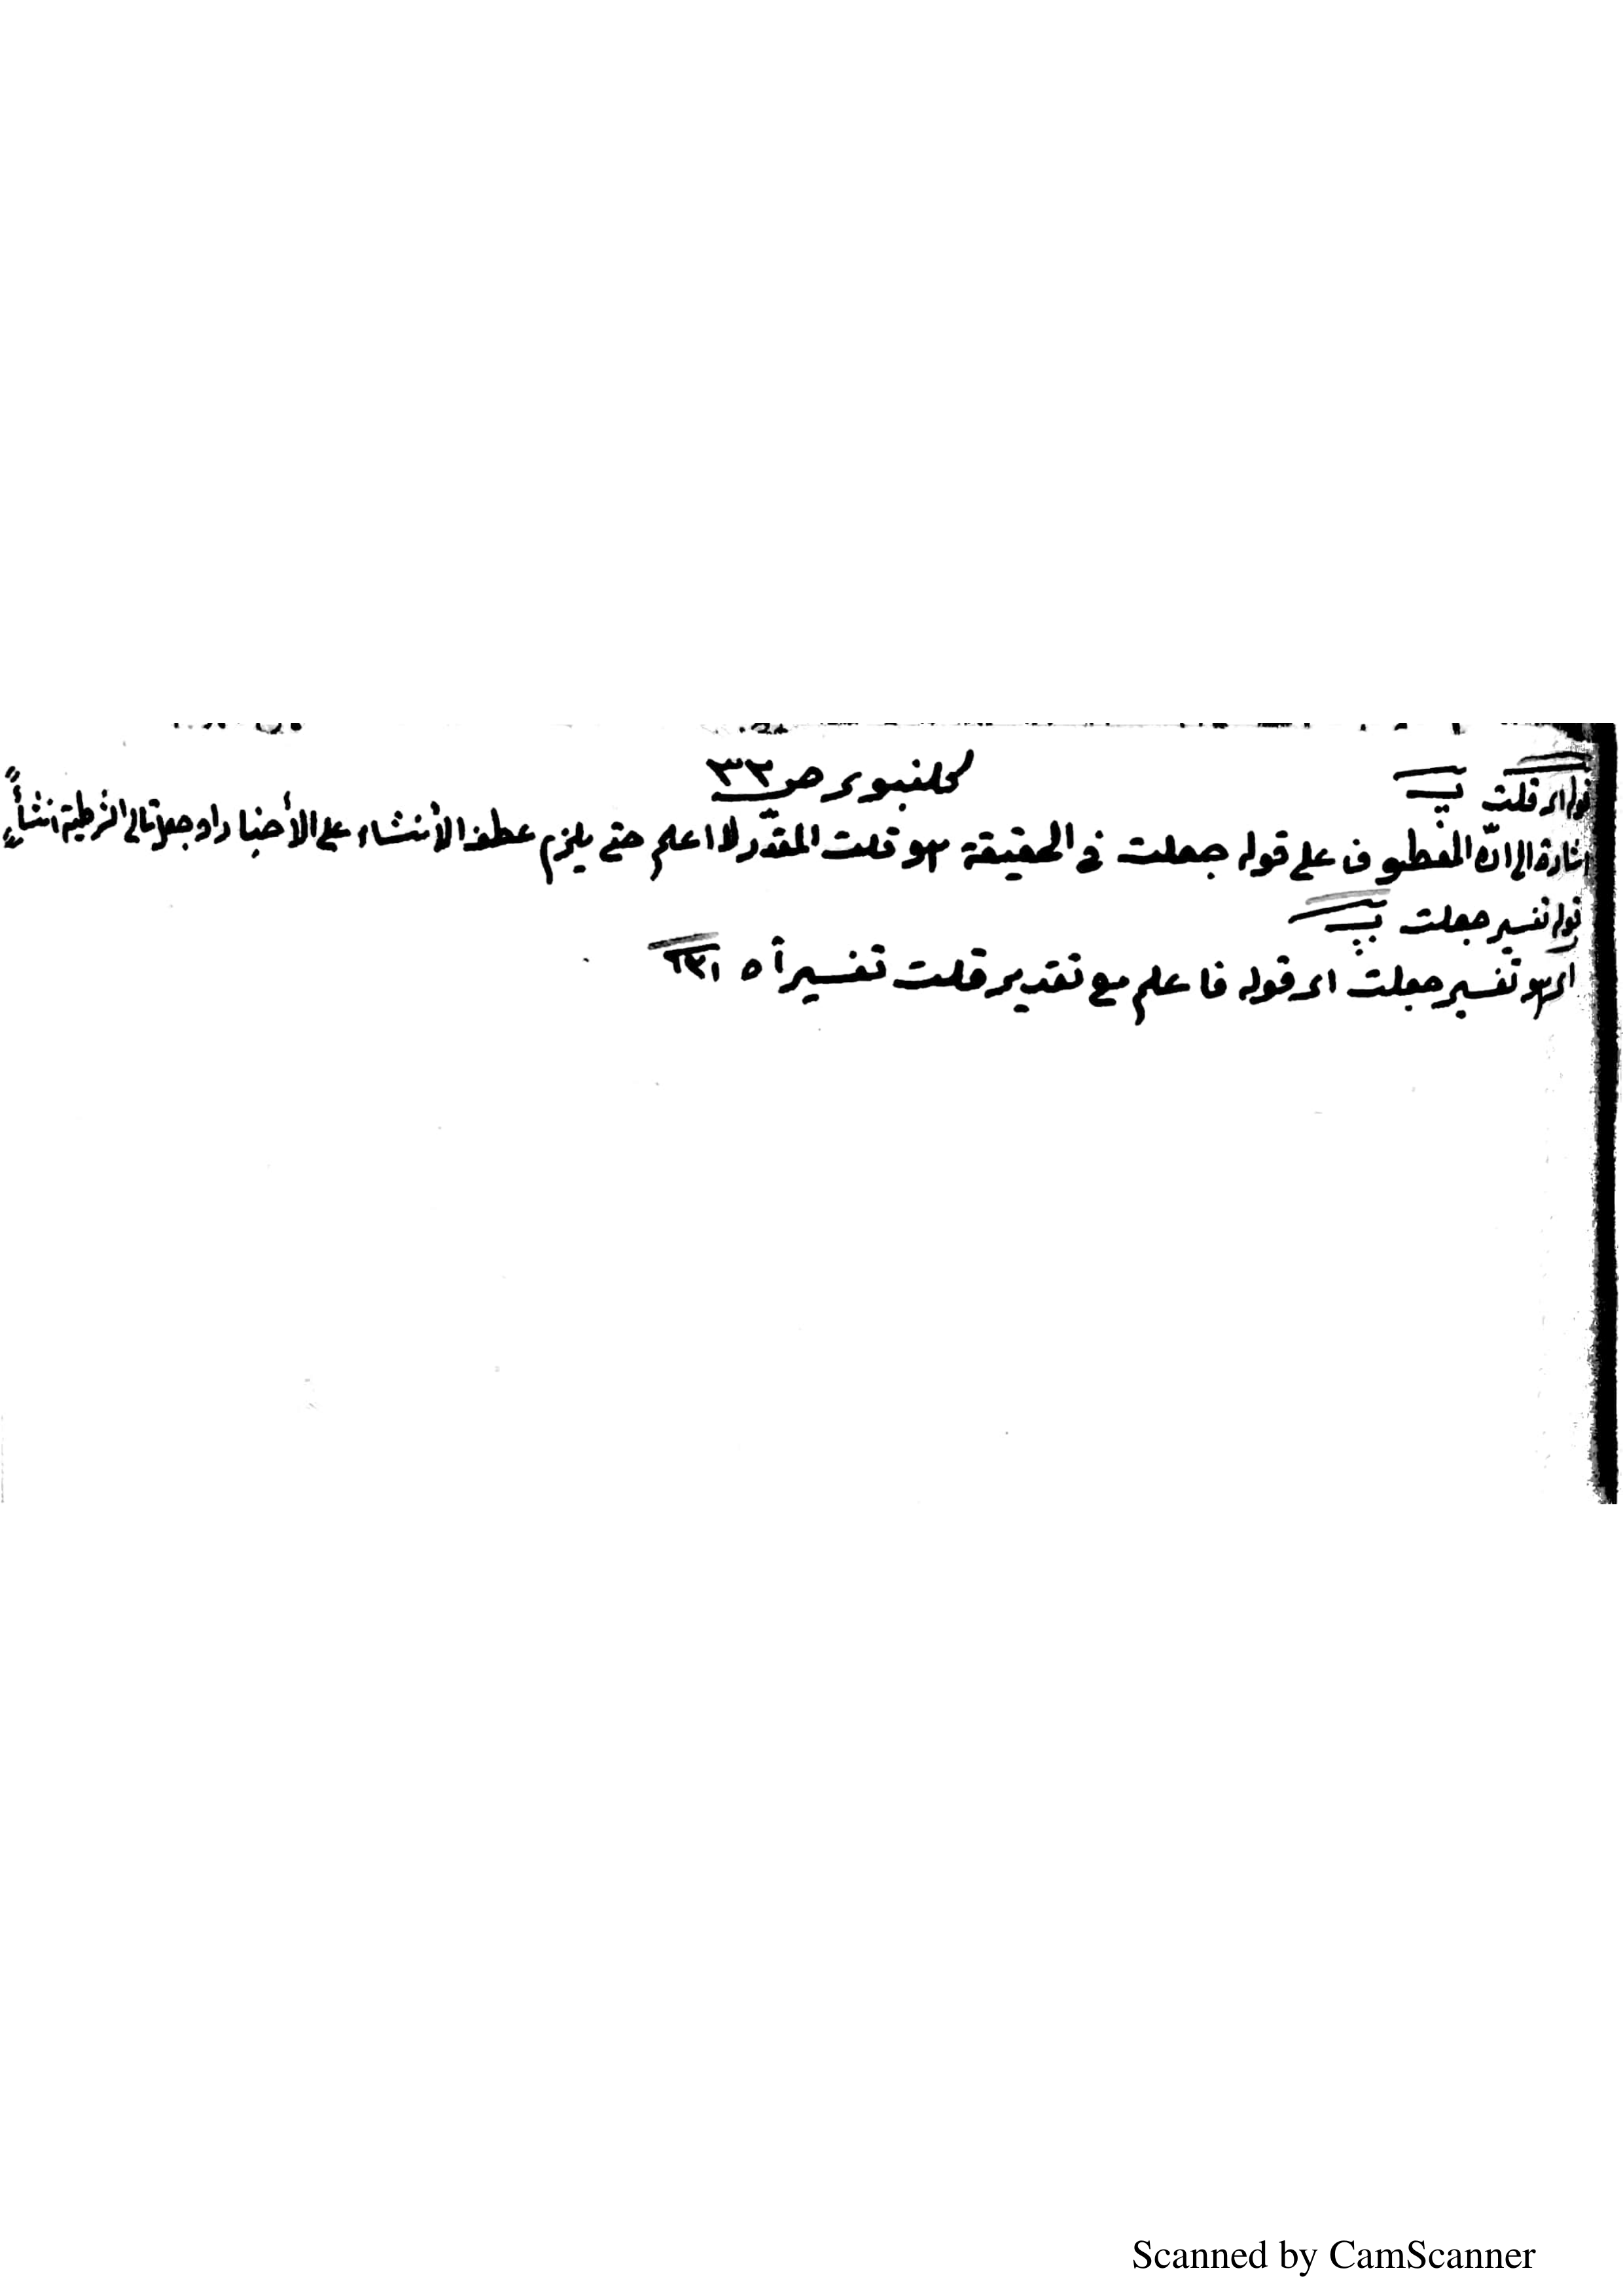 كلنبوي ص٣٣
قوله اى قلت
اشارة الى انّ المعطوف على قوله جعلت فى الحقيقة هو قلت المقدّر لا اعلم حتى يلزم عطف الأنشاء على الأخبار او جعل تالى الشرطية انشاءً
قوله تفسير جعلت
اى هو تفسير جعلت اى قوله فاعلم مع تقدير قلت تفسير أه
Scanned by CamScanner